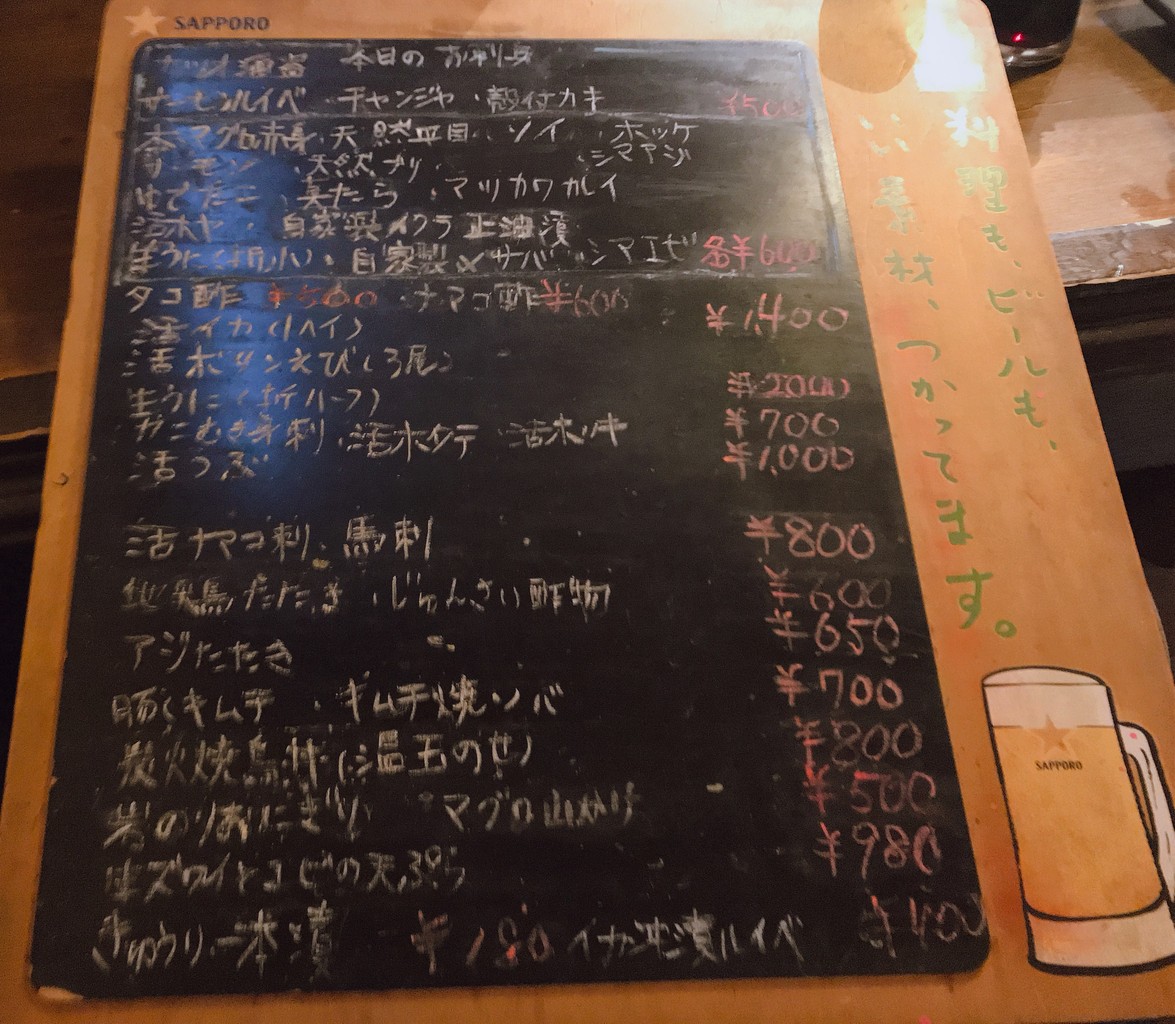 SAPPORO
本日の お刺身
サーモンルイベ チャンジャ・殻付カキ ¥500
本マグロ赤身・天然平目・ソイ・ホッケ
サーモン・天然ブリ・シマアジ
ゆでだこ・真だら・マツカワカレイ
活ホヤ・自家製イクラ正油漬
生うに(折小)・自家製〆サバ・シマエビ 各¥600
タコ酢 ¥500 ・ナマコ酢 ¥600
活イカ(1ハイ) ¥1,400
活ボタンえび(3尾)
生うに(折ハーフ) ¥2000
カニむき身刺・活ホタテ・活ホッキ ¥700
活つぶ ¥1,000
活ナマコ刺・馬刺 ¥800
地鶏たたき・じゅんさい酢物 ¥600
アジたたき ¥650
豚キムチ・キムチ焼ソバ ¥700
炭火焼鳥丼(温玉のせ) ¥800
岩のりおにぎり マグロ山かけ ¥500
生ズワイとエビの天ぷら ¥980
きゅうり一本漬 ¥180 イカ沖漬ルイベ ¥400
料理も、ビールも、
いい素材、つかってます。
SAPPORO